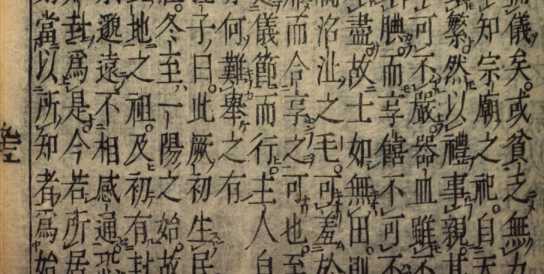 儀矣。或貧乏無
知宗廟之祀。自天
繁然以禮事親。其
可不嚴器皿雖不
腆而享饎不可不
盡故士如無田則
沼沚之毛。可羞於
而合享之可也。至
儀節而行主人自
何難舉之有
子曰。此厥初生民
冬至一陽之始故
地之祖。及初有封
遞遠不相感通恐
封爲是今若所居
當以所知者爲始